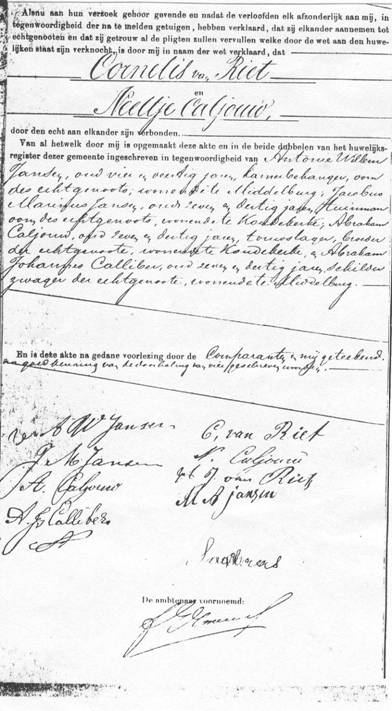 Alsnu aan hun verzoek gehoor gevende en nadat de verloofden elk afzonderlijk aan mij, in
tegenwoordigheid der na te melden getuigen, hebben verklaard, dat zij elkander aannemen tot
echtgenooten en dat zij getrouw al de pligten zullen vervullen welke door de wet aan den huwe-
lijken staat zijn verknocht, is door mij in naam der wet verklaard, dat
Cornelis van Riet
en
Neeltje Caljouw,
door den echt aan elkander zijn verbonden.
Van al hetwelk door mij is opgemaakt deze akte en in de beide dubbelen van het huwelijks-
register dezer gemeente ingeschreven in tegenwoordigheid van Antonie Willem
Jansen, oud vier en veertig jaren, kamerbehanger, oom
des echtgenoote, wonende te Middelburg; Jacobus
Marinus Jansen, oud zeven en dertig jaren, Huurman
oom des echtgenoote, wonende te Koudekerke; Abraham
Caljouw, oud zeven en dertig jaren, touwslager, broeder
der echtgenoote, wonende te Koudekerke, en Abraham
Johannes Calliber, oud zeven en dertig jaren, schilder
zwager der echtgenoote, wonende te Middelburg.
En is deze akte na gedane voorlezing door de Comparanten en mij geteekend
na goedkeuring van de doorhaling van
A W Jansen
C. van Riet
J M Jansen
N. Caljouw
van Riet
A. Caljouw
M A Jansen
A. J. Calliber
De ambtenaar voornoemd: